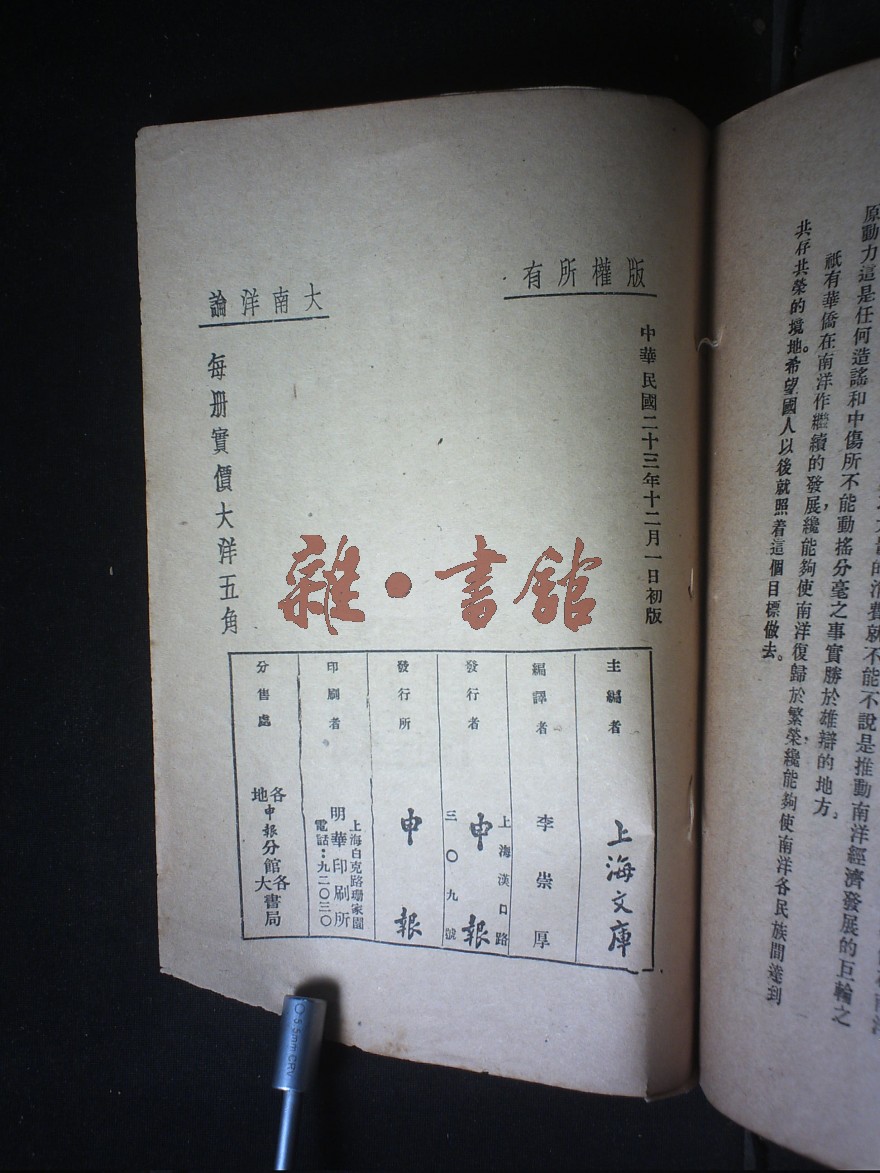 原動力這是任何造謠和中傷所不能動搖分毫之事實勝於雄辯的地方。
祇有華僑在南洋作繼續的發展，纔能夠使南洋復歸於繁榮，纔能夠使南洋各民族間達到
共存共榮的境地。希望國人以後就照着這個目標做去。
版權所有
中華民國二十三年十二月一日初版
大南洋論
每册實價大洋五角
雜·書館
主編者 上海文庫
編譯者 李崇厚
發行者 申報
上海漢口路
三〇九號
發行所 申報
印刷者 明華印刷所
上海白克路珊家園
電話：九二〇三〇
分售處 各地申報分館各大書局
10-5.5mm CRV